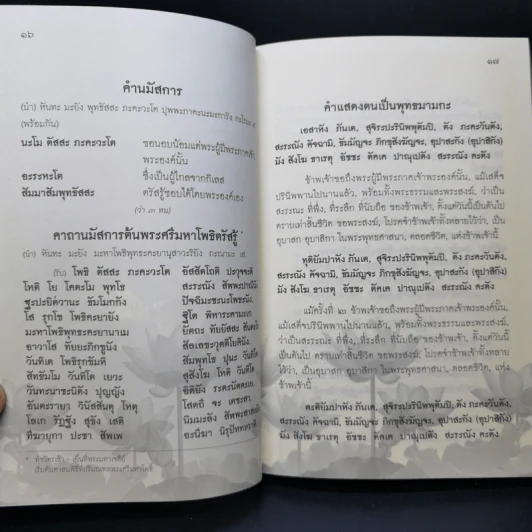 ๑๖
คำนมัสการ
(นำ) หันทะ มะยัง พุทธัสสะ ภะคะวะโต ปุพพะภาคะนะมะการัง กะโรมะ เส
(พร้อมกัน)
นะโม ตัสสะ ภะคะวะโต ขอนอบน้อมแด่พระผู้มีพระภาคเจ้า
พระองค์นั้น
อะระหะโต ซึ่งเป็นผู้ไกลจากกิเลส
สัมมาสัมพุทธัสสะ ตรัสรู้ชอบได้โดยพระองค์เอง
(ว่า ๓ หน)
คาถานมัสการต้นพระศรีมหาโพธิตรัสรู้ *
(นำ) หันทะ มะยัง มะหาโพธิพุทธะคะยานุสาวะริยัง
(รับ) โพธิ ตัสสะ ภะคะวะโต อัสสัตโถติ ปะวุจจะติ
โหติ โย โคตะโม พุทโธ สะระณัง สัพพะปาณินัง
ฐะปะยิตวานะ ธัมโมกกัง ปัจฉิมะชะนะโพชะนัง
โส รุกโข โพธิคะยายัง ฐิโต พิหาระคามะเก
มะหาโพธิพุทธะคะยานาเม
อาวาโส ทัยยะภิกขูนัง
วันทิเต โพธิรุกขัมหี สัมพุทโธ ปุนะ วันทิโต
สัทธัมโม วันทิโต เยวะ สุสังโฆ โหติ วันทิโต
วันทะนาชะนิตัง ปุญญัง อิติยัง ระตะนัตตะเย
อันตะรายา วินัสสันตุ โหตุ โสตถี จะ เตชะสา
โลเก รัฏฐัง สุขัง เสติ
ทีฆายุกา ปะชา สัพเพ อะนีฆา นิรุปัททะวาติ
๑๗
คำแสดงตนเป็นพุทธมามกะ
เอสาหัง ภันเต, สุจิระปะรินิพพุตัมปิ, ตัง ภะคะวันตัง,
สะระณัง คัจฉามิ, ธัมมัญจะ ภิกขุสังฆัญจะ, อุปาสะกัง (อุปาสิกัง)
มัง สังโฆ ธาเรตุ อัชชะ ตัคเค ปาณุเปตัง สะระณัง คะตัง
ข้าพเจ้าขอถึงพระผู้มีพระภาคเจ้าพระองค์นั้น, แม้เสด็จ
ปรินิพพานไปนานแล้ว, พร้อมทั้งพระธรรมและพระสงฆ์, ว่าเป็น
สรณะ ที่พึ่ง, ที่ระลึก ที่นับถือ ของข้าพเจ้า, ตั้งแต่วันนี้เป็นต้นไป
ตราบเท่าสิ้นชีวิต ขอพระสงฆ์, โปรดจำข้าพเจ้าทั้งหลายไว้ว่า, เป็น
อุบาสก อุบาสิกา ในพระพุทธศาสนา, ตลอดชีวิต, แห่งข้าพเจ้านี้
ทุติยัมปาหัง ภันเต, สุจิระปะรินิพพุตัมปิ, ตัง ภะคะวันตัง
สะระณัง คัจฉามิ, ธัมมัญจะ ภิกขุสังฆัญจะ, อุปาสะกัง (อุปาสิกัง)
มัง สังโฆ ธาเรตุ อัชชะ ตัคเค ปาณุเปตัง สะระณัง คะตัง
แม้ครั้งที่ ๒ ข้าพเจ้าขอถึงพระผู้มีพระภาคเจ้าพระองค์นั้น,
แม้เสด็จปรินิพพานไปนานแล้ว, พร้อมทั้งพระธรรมและพระสงฆ์,
ว่าเป็นสรณะ ที่พึ่ง, ที่ระลึก ที่นับถือ ของข้าพเจ้า, ตั้งแต่วันนี้เป็น
ต้นไป ตราบเท่าสิ้นชีวิต ขอพระสงฆ์, โปรดจำข้าพเจ้าทั้งหลาย
ไว้ว่า, เป็นอุบาสก อุบาสิกา ในพระพุทธศาสนา, ตลอดชีวิต, แห่ง
ข้าพเจ้านี้
ตะติยัมปาหัง ภันเต, สุจิระปะรินิพพุตัมปิ, ตัง ภะคะวันตัง,
สะระณัง คัจฉามิ, ธัมมัญจะ ภิกขุสังฆัญจะ, อุปาสะกัง (อุปาสิกัง)
มัง สังโฆ ธาเรตุ อัชชะ ตัคเค ปาณุเปตัง สะระณัง คะตัง